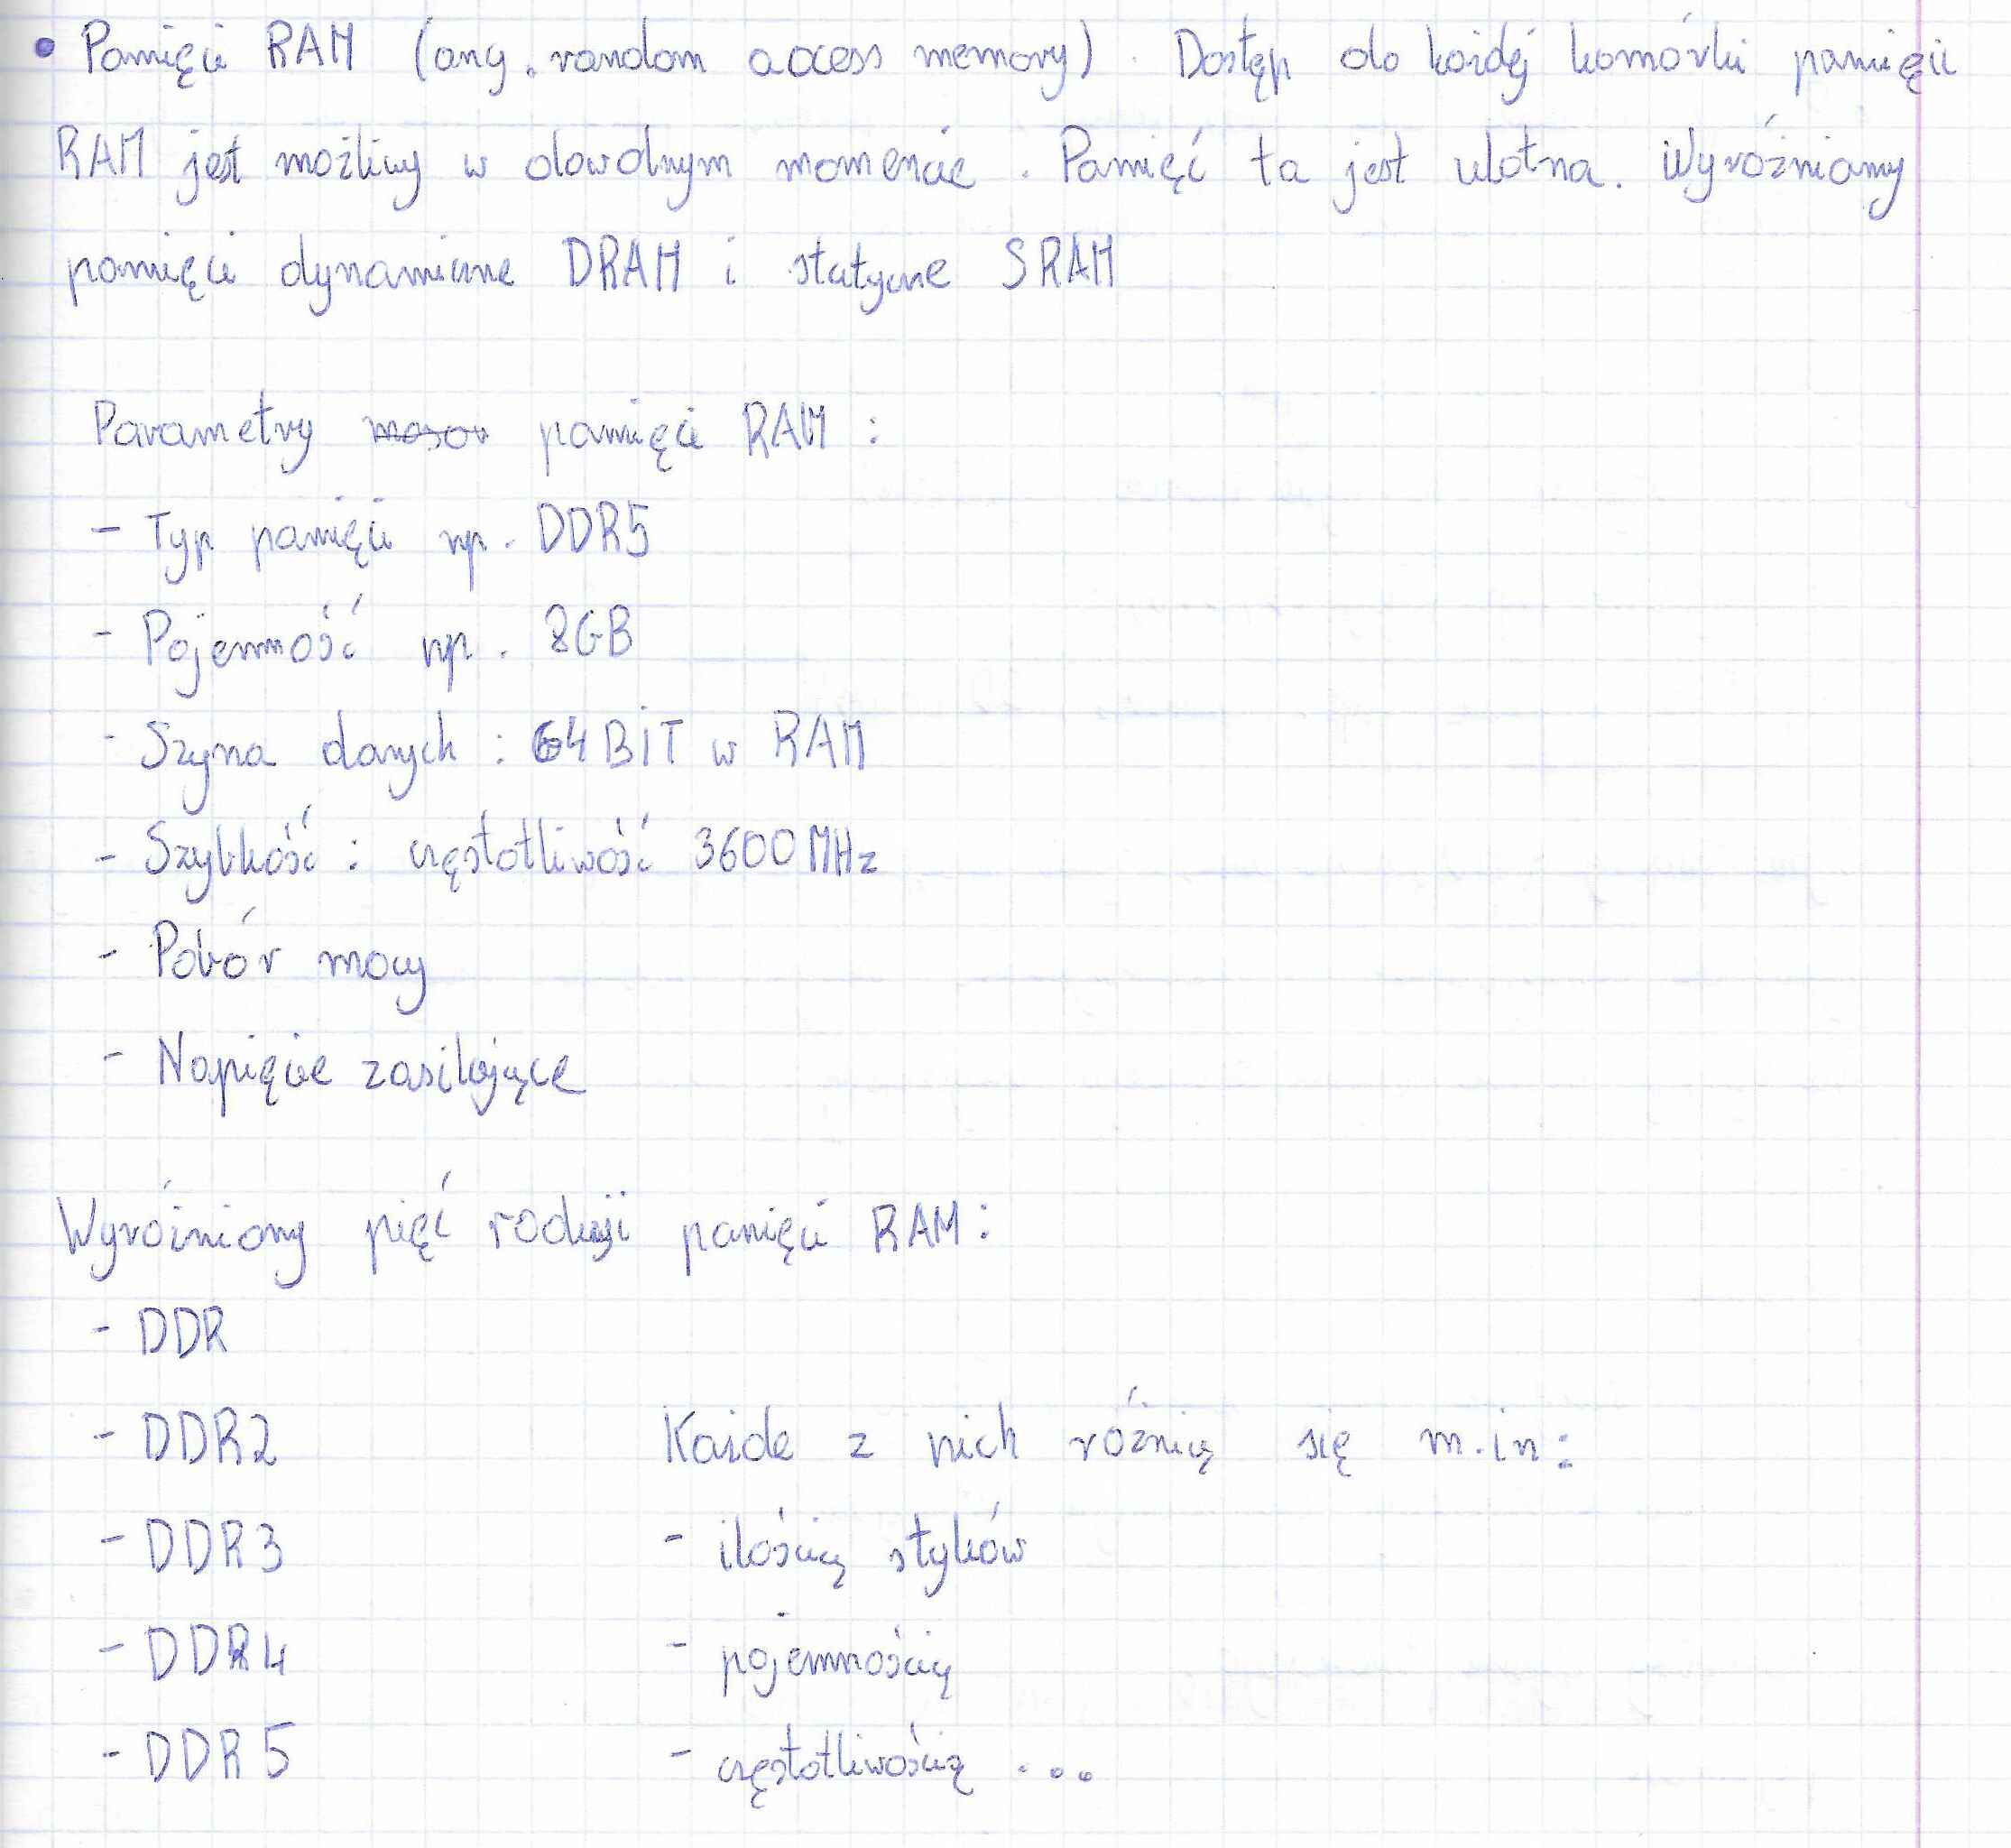 • Pamięci RAM (ang. random access memory). Dostęp do każdej komórki pamięci
RAM jest możliwy w dowolnym momencie. Pamięć ta jest ulotna. Wyróżniamy
pamięci dynamiczne DRAM i statyczne SRAM
Parametry pamięci RAM:
- Typ pamięci np. DDR5
- Pojemność np. 8GB
- Szyna danych: 64BIT w RAM
- Szybkość: częstotliwość 3600MHz
- Pobór mocy
- Napięcie zasilające
Wyróżniamy pięć rodzaji pamięci RAM:
- DDR
- DDR2
- DDR3
- DDR4
- DDR5
Każde z nich różnią się m.in:
- ilością styków
- pojemnością
- częstotliwością ...